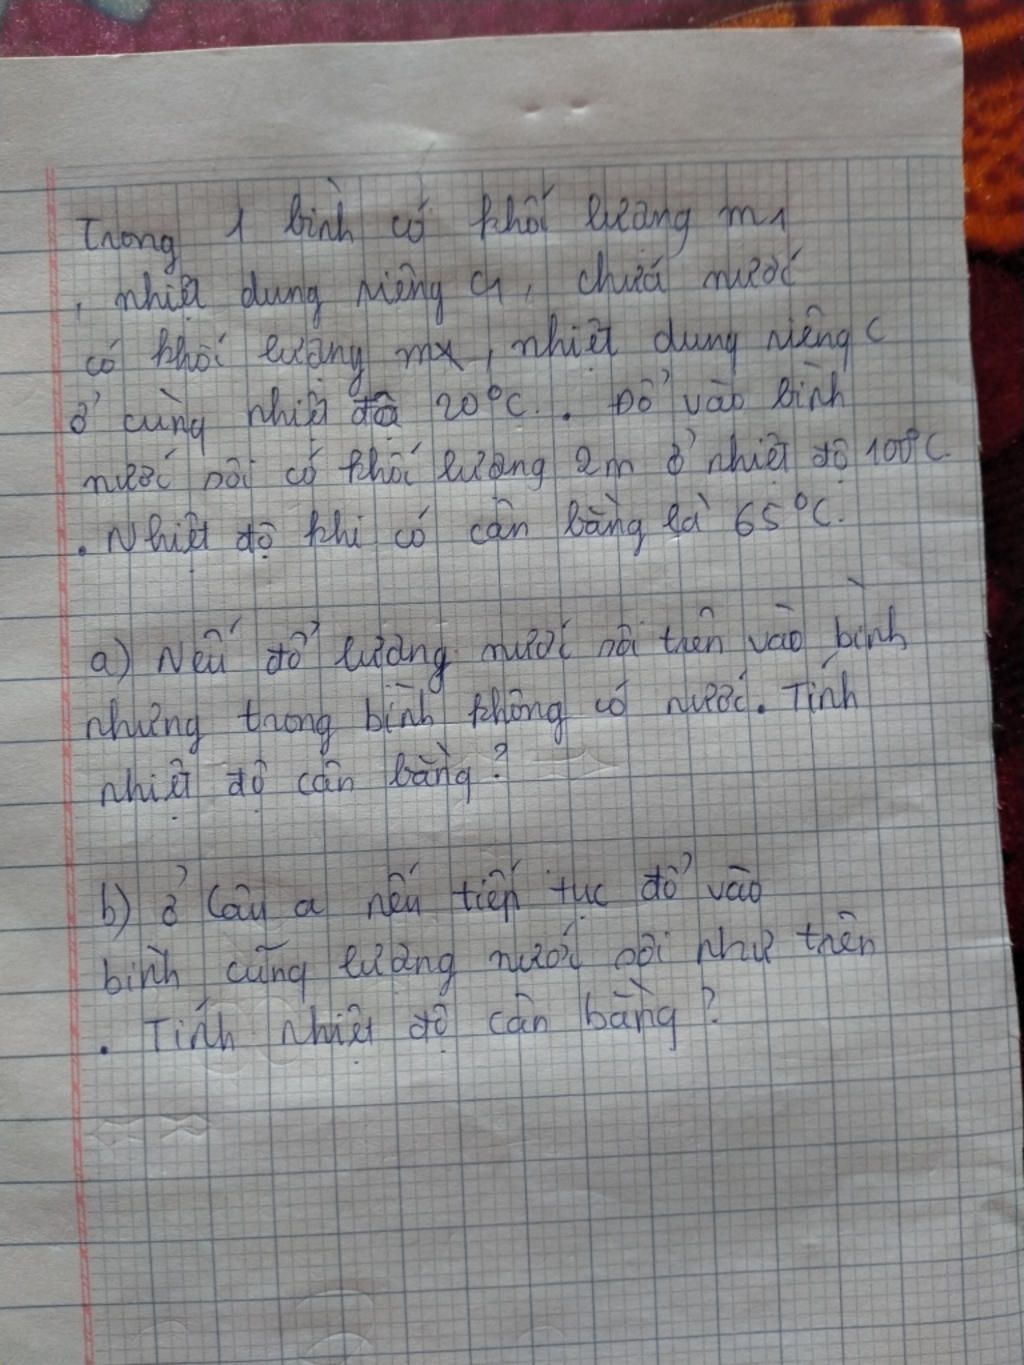 Trong 1 bình có khối lượng m1
, nhiệt dung riêng c1, chứa nước
có khối lượng m, nhiệt dung riêng c
ở cùng nhiệt độ 20°C.. Đổ vào bình
nước sôi có khối lượng 2m ở nhiệt độ 100°C
. Nhiệt độ khi có cân bằng là 65°C.
a) Nếu đổ lượng nước sôi trên vào bình
nhưng trong bình không có nước. Tính
nhiệt độ cân bằng?
b) ở Câu a nếu tiếp tục đổ vào
bình cũng lượng nước sôi như trên
. Tính nhiệt độ cân bằng?